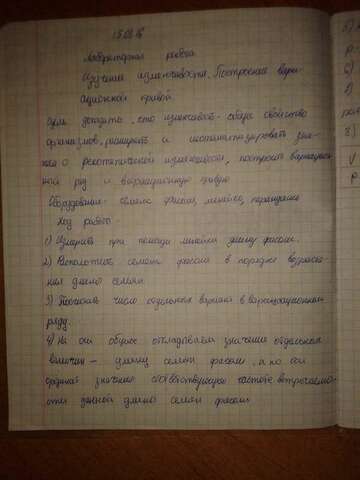 Лабораторная работа
Изучение изменчивости. Построение вари-
ационной кривой.
доказать, что изменчивость - общее свойство
организмов, расширить и систематизировать зна-
ния о генотипической изменчивости, построить вариацион-
ный ряд и вариационную кривую
Оборудование: семена фасоли, линейка,
Ход работы.
1) Измерить при помощи линейки длину фасоли.
2) Расположите семена фасоли в порядке возраста-
ния длины семени
3) число отдельных вариант в вариационном
ряду.
4) На оси абцисс откладываем значение отдельных
величин - длину семян фасоли, а по оси
ординат значение соответствующее частоте встречаемо-
сти данной длины семян фасоли